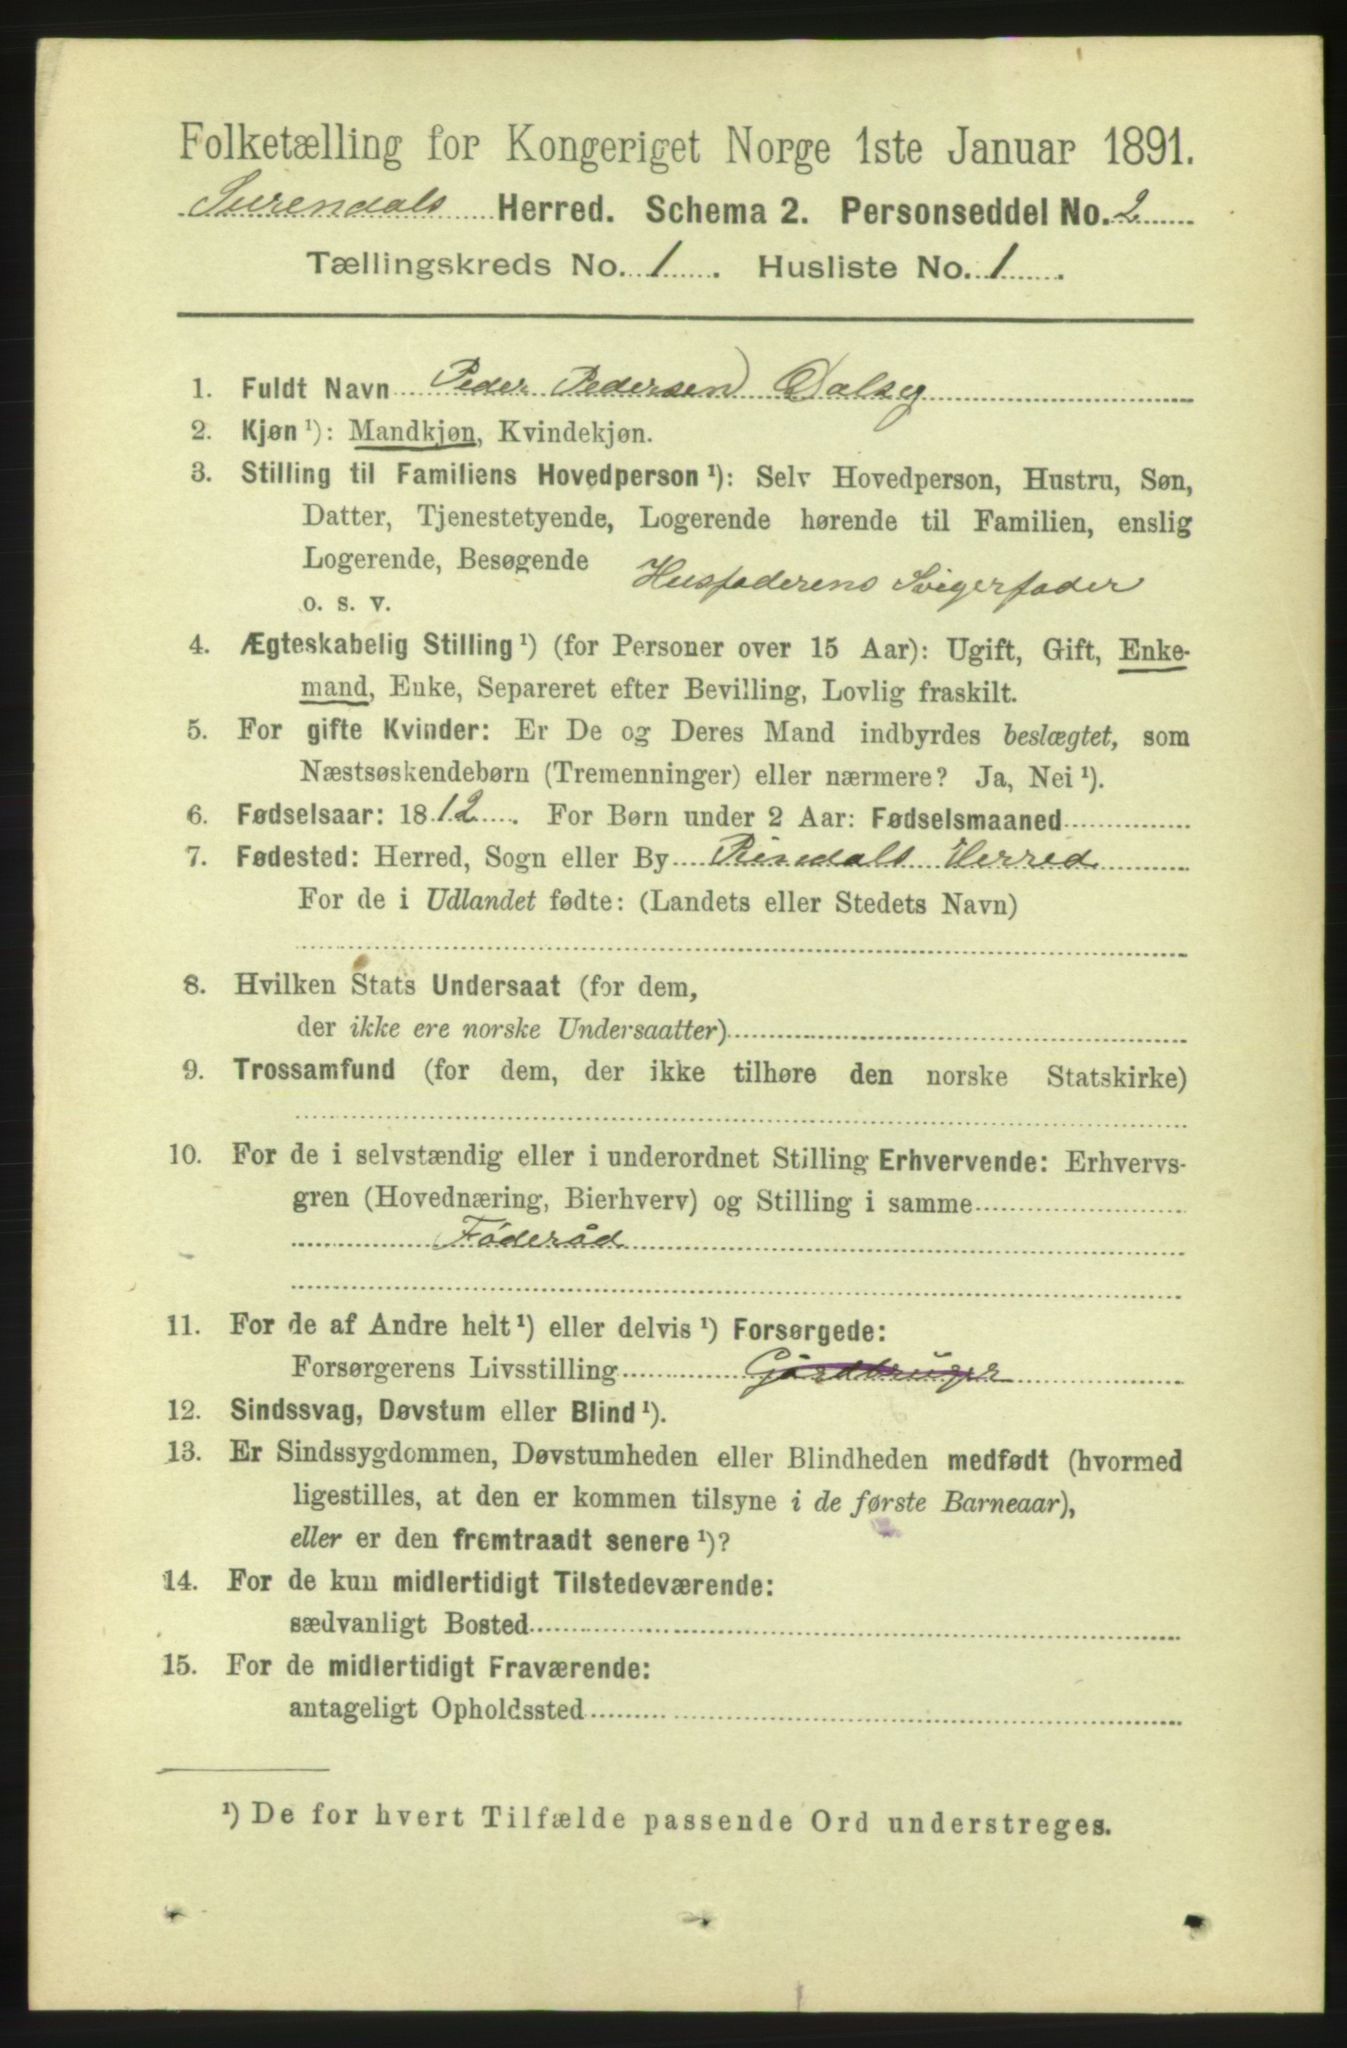 Folketælling for Kongeriget Norge 1ste Januar 1891.
Surendals Herred. Schema 2. Personseddel No. 2
Tællingskreds No. 1. Husliste No. 1.
1. Fuldt Navn Peder Pedersen) Dalseg
2. Kjøn ¹): Mandkjøn, Kvindekjøn.
3. Stilling til Familiens Hovedperson ¹): Selv Hovedperson, Hustru, Søn,
Datter, Tjenestetyende, Logerende hørende til Familien, enslig
Logerende, Besøgende Husfaderens Svigerfader
o. s. v.
4. Ægteskabelig Stilling ¹) (for Personer over 15 Aar): Ugift, Gift, Enke-
mand, Enke, Separeret efter Bevilling, Lovlig fraskilt.
5. For gifte Kvinder: Er De og Deres Mand indbyrdes beslægtet, som
Næstsøskendebørn (Tremenninger) eller nærmere? Ja, Nei ¹).
6. Fødselsaar: 1812. For Børn under 2 Aar: Fødselsmaaned
7. Fødested: Herred, Sogn eller By Rindals Herred
For de i Udlandet fødte: (Landets eller Stedets Navn)
8. Hvilken Stats Undersaat (for dem,
der ikke ere norske Undersaatter)
9. Trossamfund (for dem, der ikke tilhøre den norske Statskirke)
10. For de i selvstændig eller i underordnet Stilling Erhvervende: Erhvervs-
gren (Hovednæring, Bierhverv) og Stilling i samme
Føderåd
11. For de af Andre helt ¹) eller delvis ¹) Forsørgede:
Forsørgerens Livsstilling Gårdbruger
12. Sindssvag, Døvstum eller Blind ¹).
13. Er Sindssygdommen, Døvstumheden eller Blindheden medfødt (hvormed
ligestilles, at den er kommen tilsyne i de første Barneaar),
eller er den fremtraadt senere ¹)?
14. For de kun midlertidigt Tilstedeværende:
sædvanligt Bosted
15. For de midlertidigt Fraværende:
antageligt Opholdssted
¹) De for hvert Tilfælde passende Ord understreges.